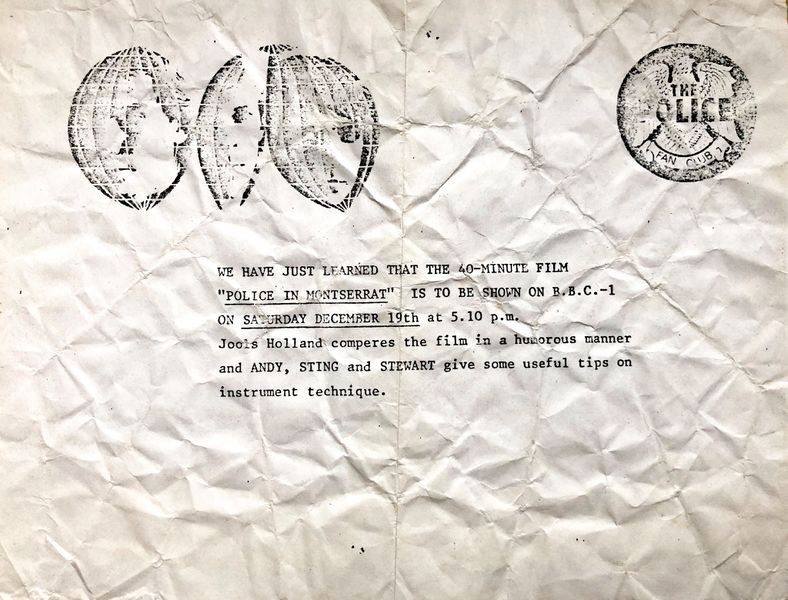 THE
POLICE
FAN CLUB
WE HAVE JUST LEARNED THAT THE 40-MINUTE FILM
"POLICE IN MONTSERRAT" IS TO BE SHOWN ON B.B.C.-1
ON SATURDAY DECEMBER 19th at 5.10 p.m.
Jools Holland comperes the film in a humorous manner
and ANDY, STING and STEWART give some useful tips on
instrument technique.